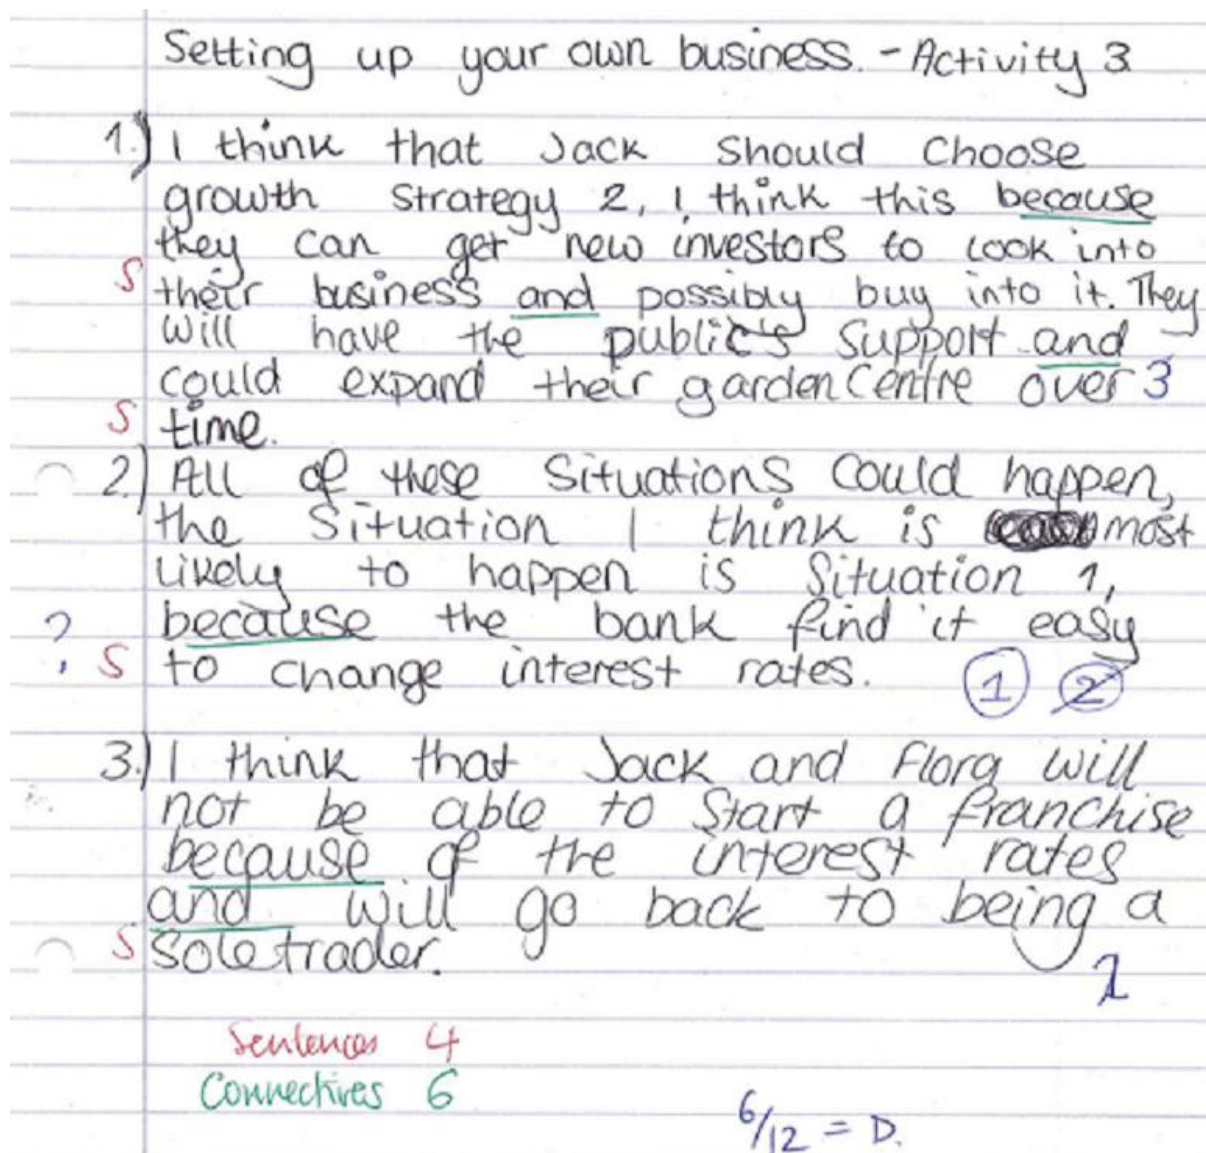 Setting up your own business. - Activity 3
1.) I think that Jack should choose
growth strategy 2, I think this because
they can get new investors to look into
S their business and possibly buy into it. They
will have the public's support and
could expand their garden centre over 3
S time.
2.) All of these situations could happen,
the situation I think is most
likely to happen is situation 1,
? because the bank find it easy
S to change interest rates. 1 2
3.) I think that Jack and Flora will
not be able to start a franchise
because of the interest rates
and will go back to being a
S sole trader.
2
Sentences 4
Connectives 6
6/12 = D.